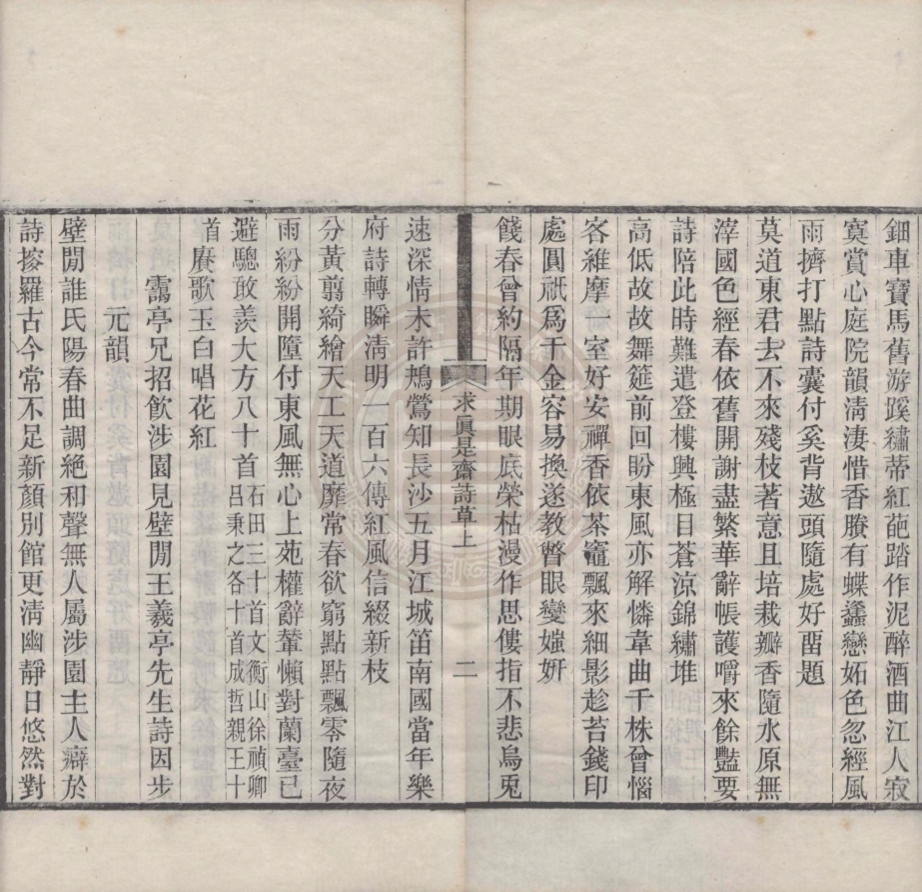 鈿車寶馬舊游蹊繡蒂紅葩踏作泥醉酒曲江人寂
寞賞心庭院韻淸淒惜香賸有蝶蠭戀妬色忽經風
雨擠打點詩囊付奚背遨頭隨處好畱題
莫道東君去不來殘枝著意且培栽瓣香隨水原無
滓國色經春依舊開謝盡繁華辭帳護嚼來餘豔要
詩陪此時難遣登樓興極目蒼涼錦繡堆
高低故故舞筵前回盼東風亦解憐韋曲千株曾惱
客維摩一室好安禪香依茶竈飄來細影趁苔錢印
處圓祇爲千金容易換遂教瞥眼變媸姸
餞春曾約隔年期眼底榮枯漫作思僂指不悲烏兎
求眞是齋詩草上
二
速深情未許鴆鶯知長沙五月江城笛南國當年樂
府詩轉瞬淸明一百六傳紅風信綴新枝
分黃翦綺繪天工天道靡常春欲窮點點飄零隨夜
雨紛紛開墮付東風無心上苑權辭輦懶對蘭臺已
避驄敢羨大方八十首石田三十首文衡山徐禎卿
呂秉之各十首成哲親王十
首賡歌玉白唱花紅
靄亭兄招飮涉園見壁閒王羲亭先生詩因步
元韻
壁閒誰氏陽春曲調絶和聲無人屬涉園主人癖於
詩搜羅古今常不足新顏別館更淸幽靜日悠然對